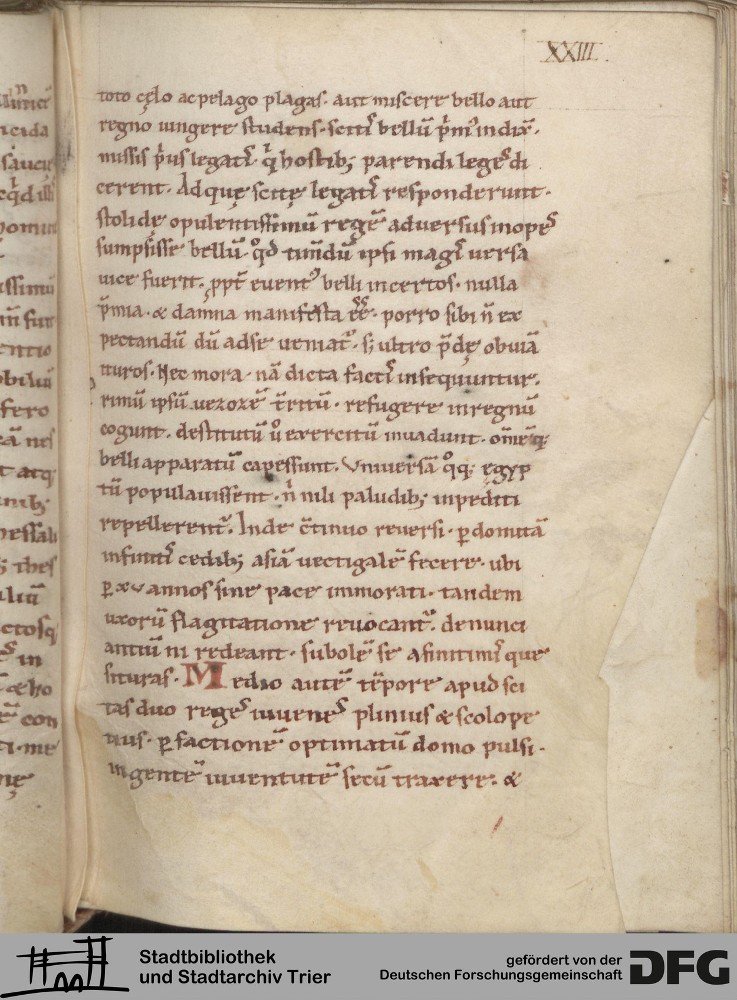 XXIII.
toto cęlo ac pelago plagas. aut miscere bello aut
regno iungere studens. scitis bellū p̄m̄ indix̄.
missis p̄us legatis. q̄ hostib; parendi leges di
cerent. Ad quę scitę legatis responderunt.
stolidę opulentissimū regē adversus inopes
sumpsisse bellū. qd̄ timdū ipsi magis versa
uice fuerit. ꝓpt̄ eventꝰ belli incertos. nulla
p̄mia. & damna manifesta ēē. porro sibi n̄ ex
pectandū dū ad se ueniat᷑. s; ultro p̄dę obuiā
ituros. Nec mora. nā dicta factis insequuntur.
rimū ipsū uezozē t̄ritū. refugere in regnū
cogunt. destitutū ū exercitū inuadunt. om̄eq;
belli apparatū capessunt. Vniuersā qq; egyp
tū populauissent. n̄ nili paludib; inpediti
repellerent᷑. Inde c̄tinuo reuersi. ꝑdomitā
infinitis cedib; asiā uectigalē fecere. ubi
ꝑ xv annos sine pace immorati. tandem
uxorū flagitatione reuocant᷑. denunci
antiū ni redeant. subolē se a finitimis que
situras. Medio autē tēpore apud sci
tas duo reges iuuenes plinius & scolope
tius. ꝑ factionē optimatū domo pulsi.
ingentē iuuentutē secū traxere. &
Stadtbibliothek
und Stadtarchiv Trier
gefördert von der
Deutschen Forschungsgemeinschaft
DFG